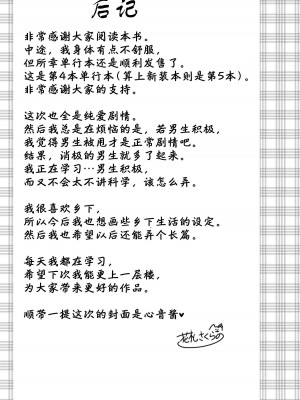 后记
非常感谢大家阅读本书。
中途，我身体有点不舒服，
但所幸单行本还是顺利发售了。
这是第4本单行本（算上新装本则是第5本）。
非常感谢大家的支持。
这次也全是纯爱剧情。
然后我总是在烦恼的是，若男生积极，
我觉得男生被甩才是正常剧情吧。
结果，消极的男生就多了起来。
我正在学习…男生积极，
而又不会太不讲科学，该怎么弄。
我很喜欢乡下，
所以今后我也想画些乡下生活的设定。
然后我也希望以后还能弄个长篇。
每天我都在学习，
希望下次我能更上一层楼，
为大家带来更好的作品。
顺带一提这次的封面是心音酱♥
花札さくらの